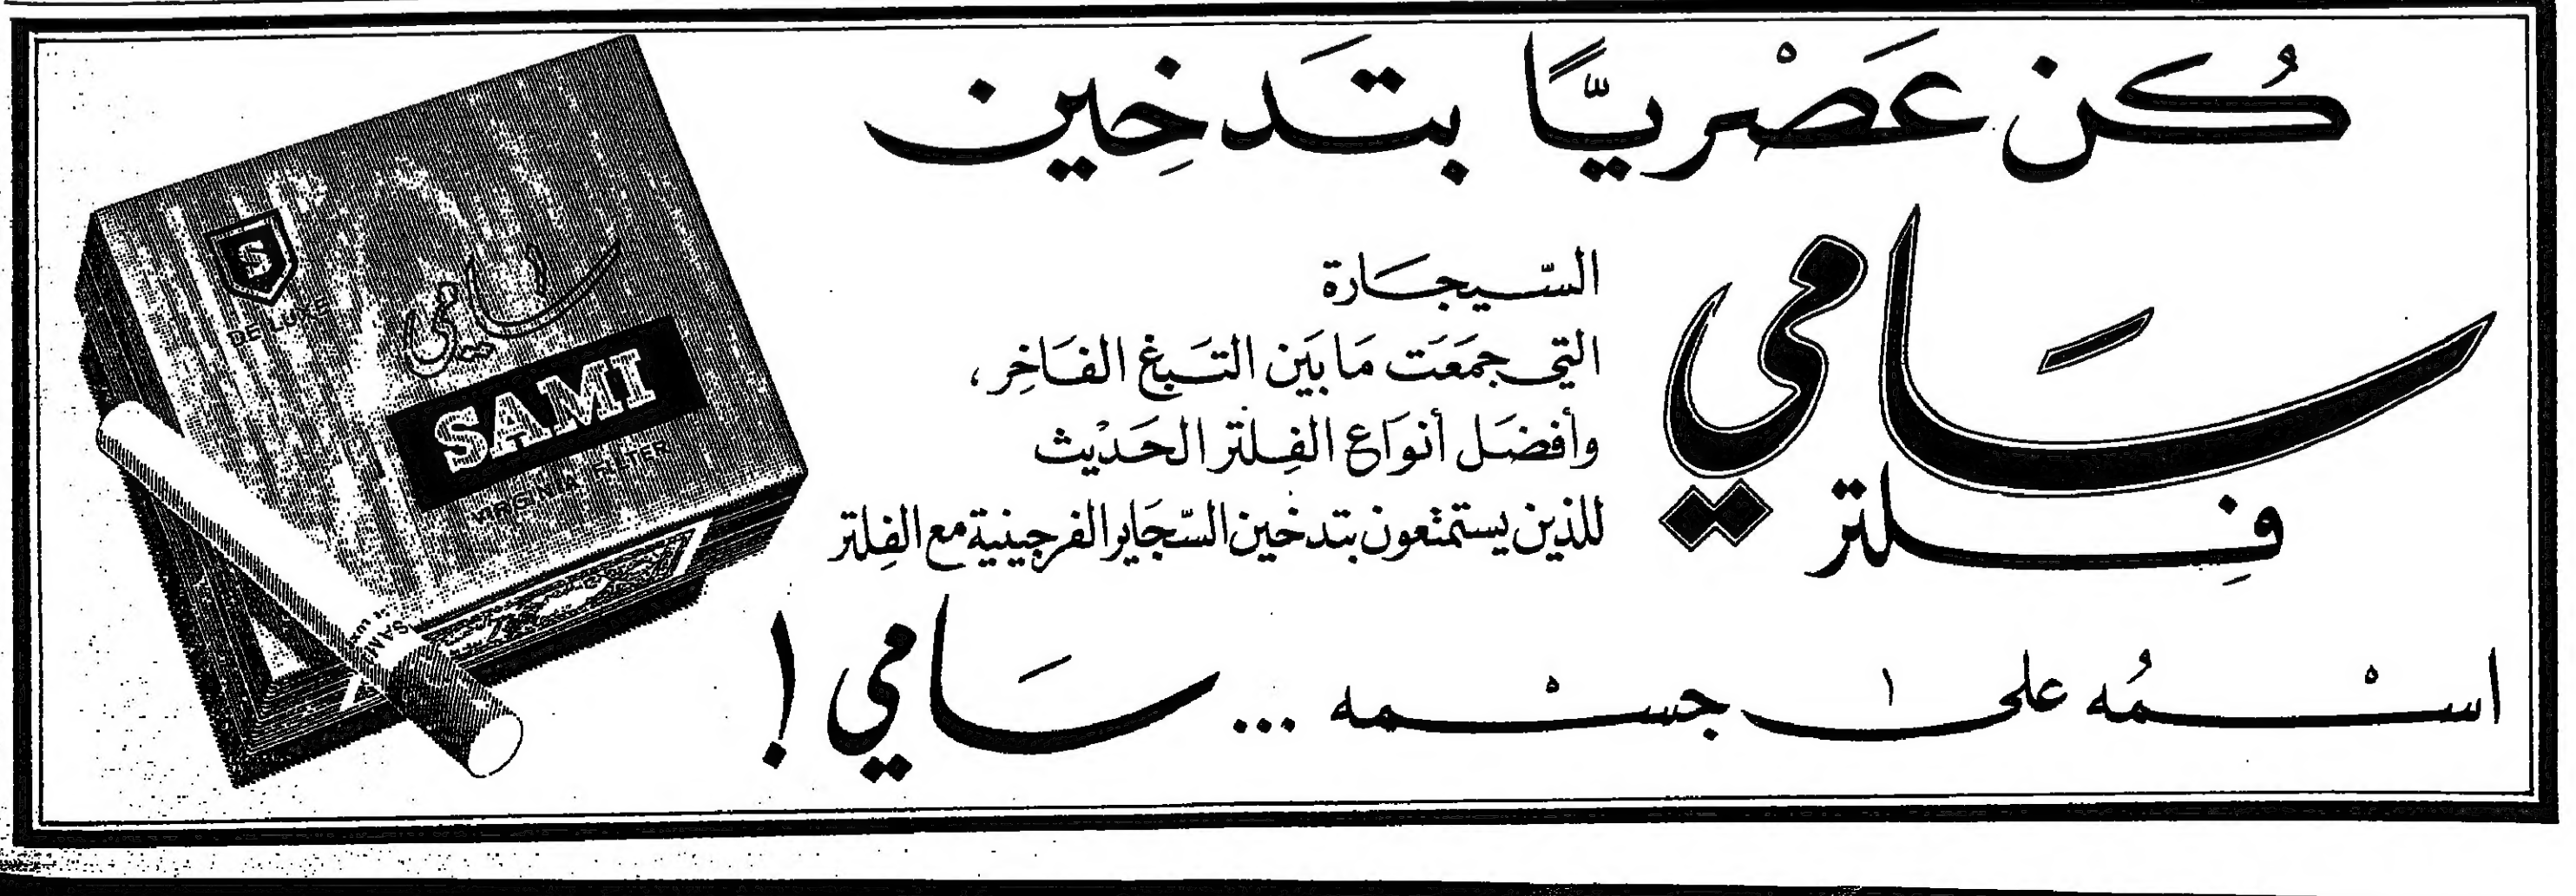 كُن عَصْريًّا بتَدخِين
سَامي
فِلتر
السّيجَارة
التي جمَعَت مَا بَين التَبغ الفَاخِر،
وأفضَل أنوَاع الفِلتر الحَديْث
للذين يستمتعون بتدخين السّجَاير الفرجينية مع الفِلتر
اسْمُه على جسْمه ... سَامي !
S
DE LUXE
سامي
SAMI
VIRGINIA FILTER
SAMI